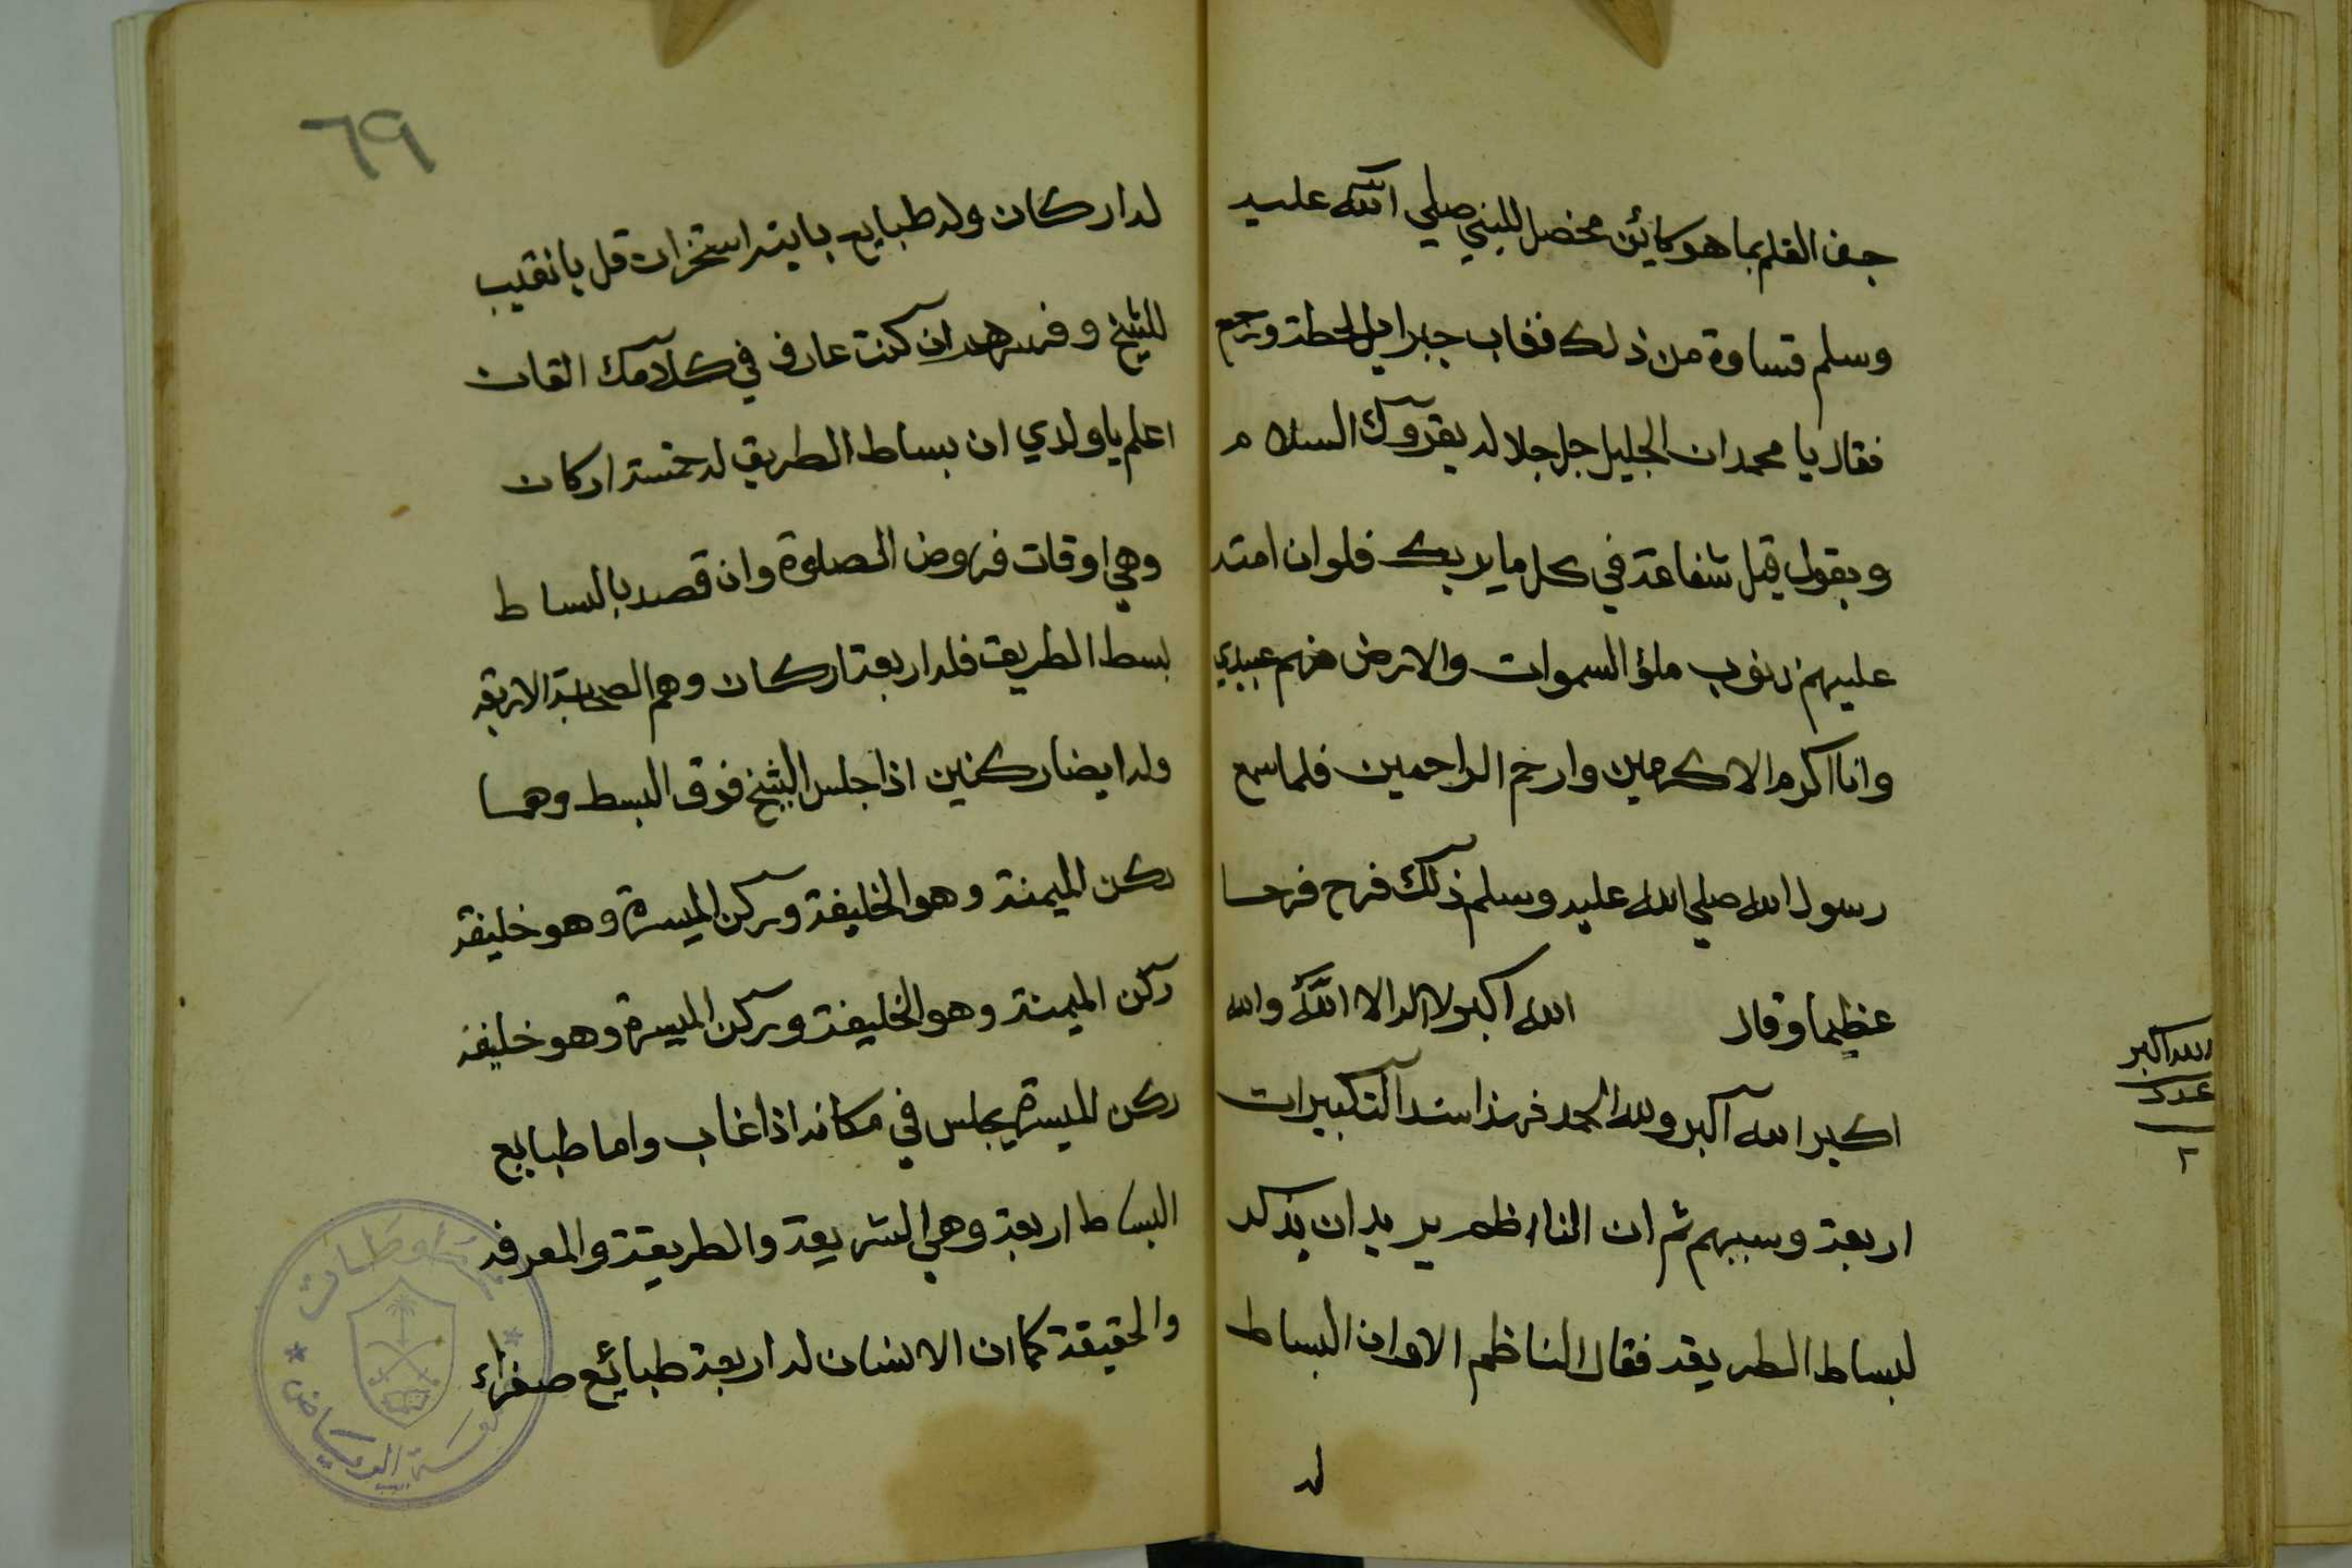 جف القلم بما هو كائن فحصل للنبي صلي الله عليه
وسلم قساوة من ذلك فغاب جبرايل لحظة ورجع
فقال يا محمد ان الجليل جل جلاله يقروك السلام
ويقول قبل شفاعة في كل ما يريك فلو ان امتد
عليهم ذنوب ملؤ السموات والارض فهم عبيدي
وانا اكرم الاكرمين وارحم الراحمين فلما سمع
رسول الله صلي الله عليه وسلم ذلك فرح فرحا
عظيما وقال الله اكبر لا اله الا الله والله
اكبر الله اكبر ولله الحمد فهذا سند التكبيرات
اربعة وسببهم ثم ان الناظم يريد ان يذكر
لبساط الطريقه فقال الناظم الا وان البساط
له
الله اكبر
عدد
٢
٦٩
له اركان وله طبايع باينه استخرات قل يا نقيب
للشيخ وفسرهم ان كنت عارف في كلامك القان
اعلم يا ولدي ان بساط الطريق له خمسة اركان
وهي اوقات فروض الصلوة وان قصد بالبساط
بسط الطريق فله اربعة اركان وهم الصحابة الاربعه
وله ايضا ركنين اذا جلس الشيخ فوق البسط وهما
ركن الميمنة وهو الخليفة وركن الميسرة وهو خليفة
ركن الميمنة وهو الخليفة وركن الميسرة وهو خليفة
ركن الميسرة يجلس في مكانه اذا غاب واما طبايع
البساط اربعة وهي الشريعة والطريقة والمعرفه
والحقيقة كما ان الانسان له اربعة طبائع صفراء